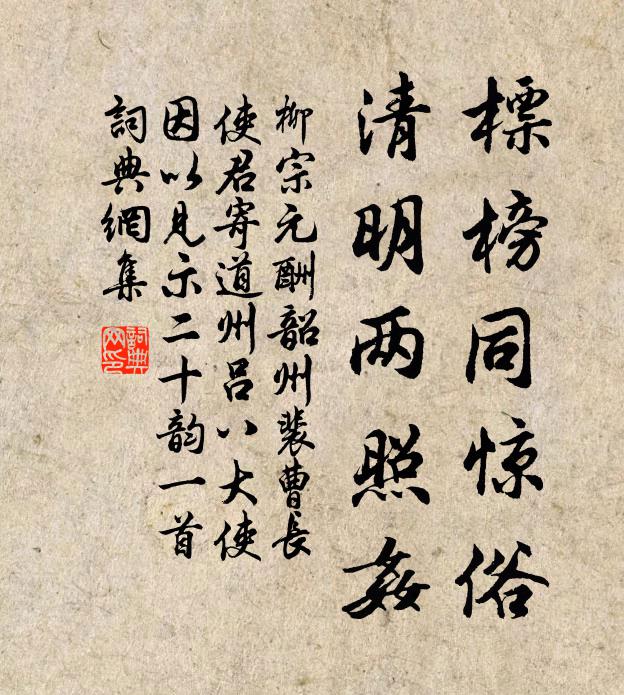 標榜同惊俗
清明两照姦
柳宗元酬韶州裴曹長
使君寄道州呂八大使
因以見示二十韵一首
詞典網集
詞典网印